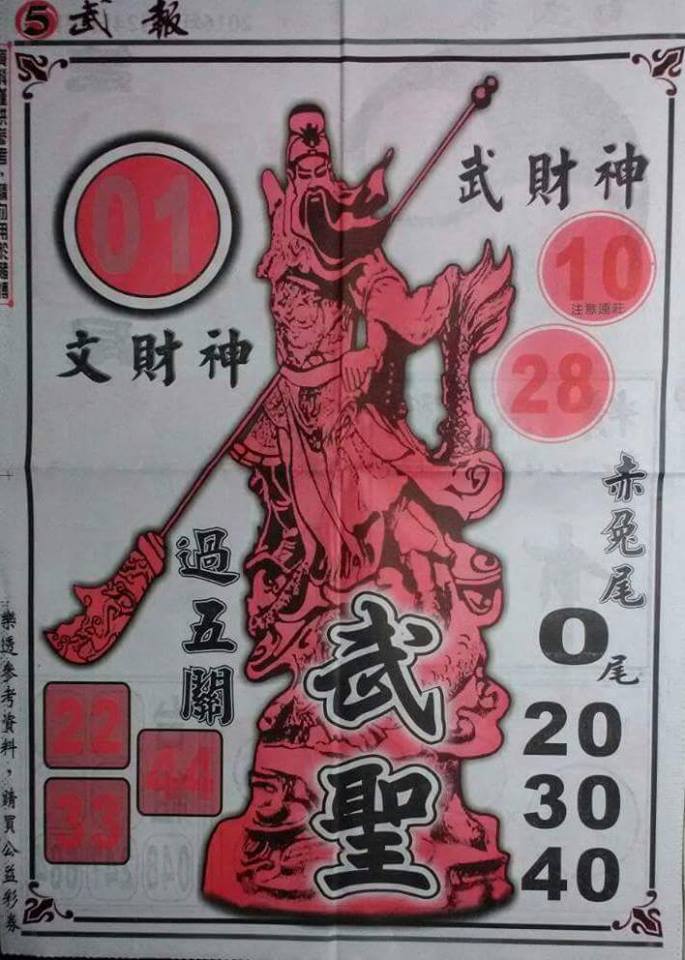 5 武報
01
文財神
武財神
10
注意連莊
28
赤兔尾
0尾
20
30
40
過五關
22
33
44
武聖
樂透參考資料，請買公益彩券